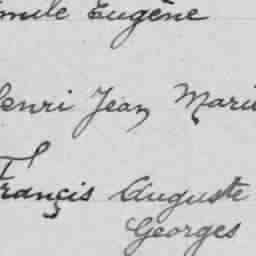 Emile Eugène
Henri Jean Marie
Françis Auguste
Georges